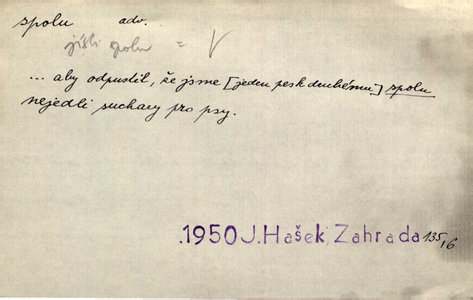 spolu adv.
jísti spolu = V
... aby odpustil, že jsme [jeden pes k druhému] spolu
nejedli suchary pro psy.
.1950 J. Hašek, Zahrada 135,16